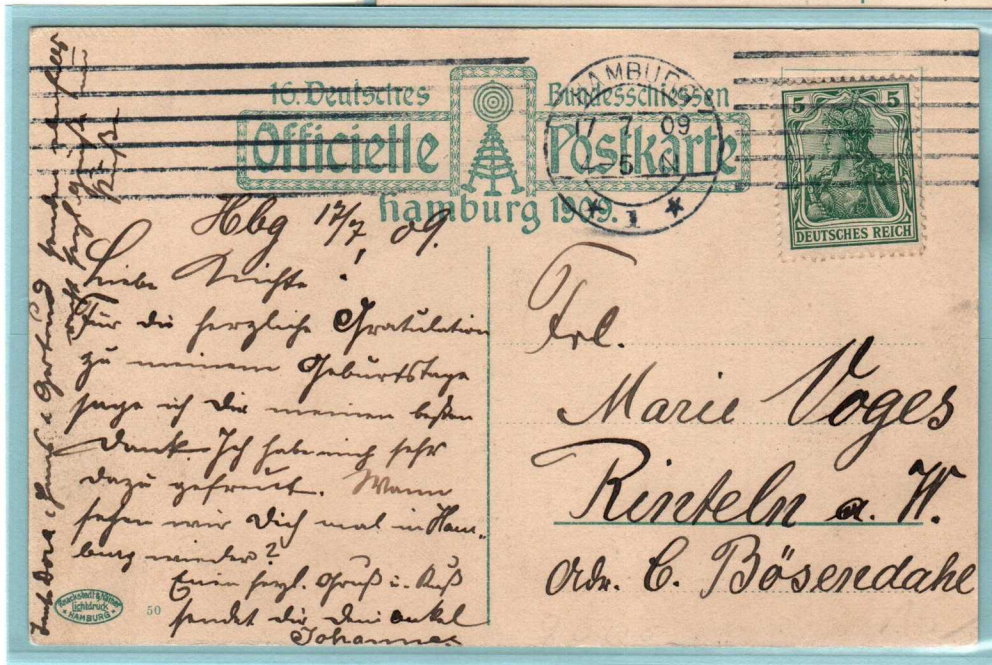 16. Deutsches Bundesschiessen
Officielle Postkarte
Hamburg 1909.
HAMBURG
17 7 09
5 N
* 1 *
5 5
DEUTSCHES REICH
Hbg 17/7 09.
Liebe Nichte!
Für die herzliche Gratulation
zu meinem Geburtstage
sage ich Dir meinen besten
Dank. Ich habe mich sehr
dazu gefreut. Wann
sehen wir Dich mal in Ham-
burg wieder?
Einen herzl. Gruß u. Kuß
sendet dir dein onkel
Johannes
Tante Dora, Hans u Gertrud senden
Frl.
Marie Voges
Rinteln a. W.
Adr. C. Bösendahl
Knackstedt & Näther
Lichtdruck
HAMBURG
50